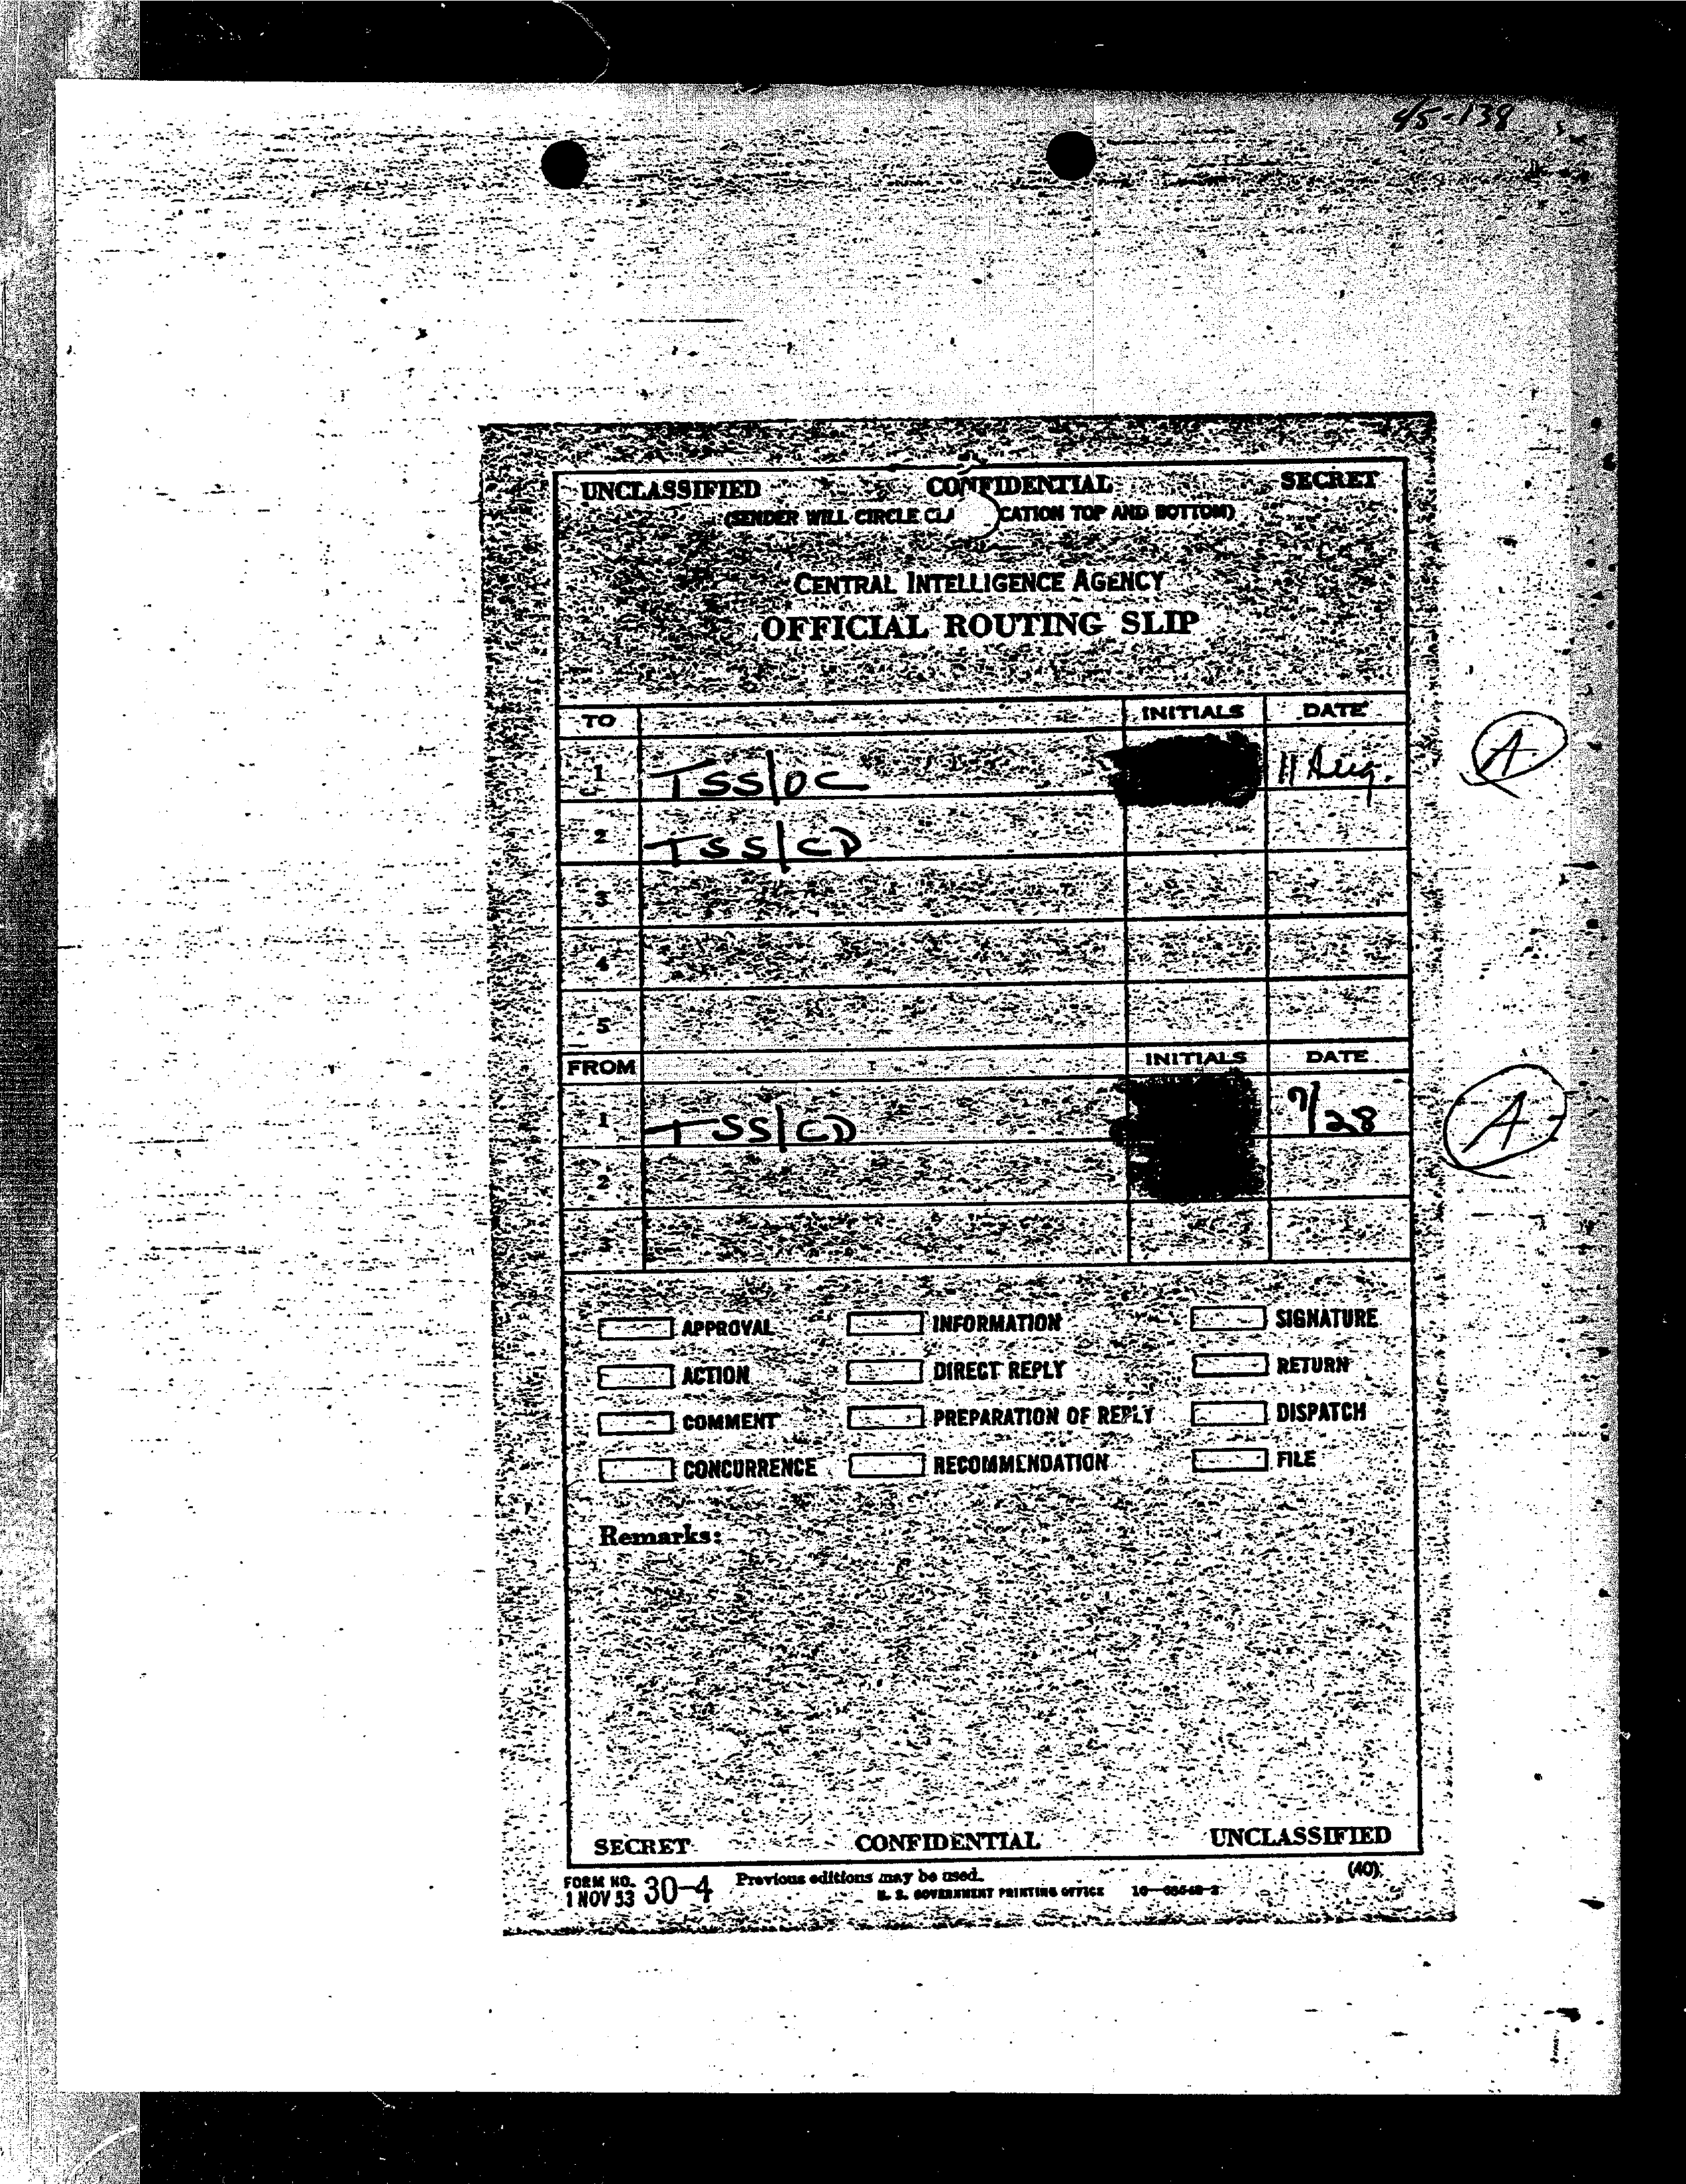 45-138
UNCLASSIFIED CONFIDENTIAL SECRET
(SENDER WILL CIRCLE CLA CATION TOP AND BOTTOM)
CENTRAL INTELLIGENCE AGENCY
OFFICIAL ROUTING SLIP
TO INITIALS DATE
1 TSS/OC 11 Aug. A
2 TSS/CD
3
4
5
FROM INITIALS DATE
1 TSS/CD 7/28 A
2
3
APPROVAL INFORMATION SIGNATURE
ACTION DIRECT REPLY RETURN
COMMENT PREPARATION OF REPLY DISPATCH
CONCURRENCE RECOMMENDATION FILE
Remarks:
SECRET CONFIDENTIAL UNCLASSIFIED
FORM NO. 30-4 Previous editions may be used. (40)
1 NOV 53 U. S. GOVERNMENT PRINTING OFFICE